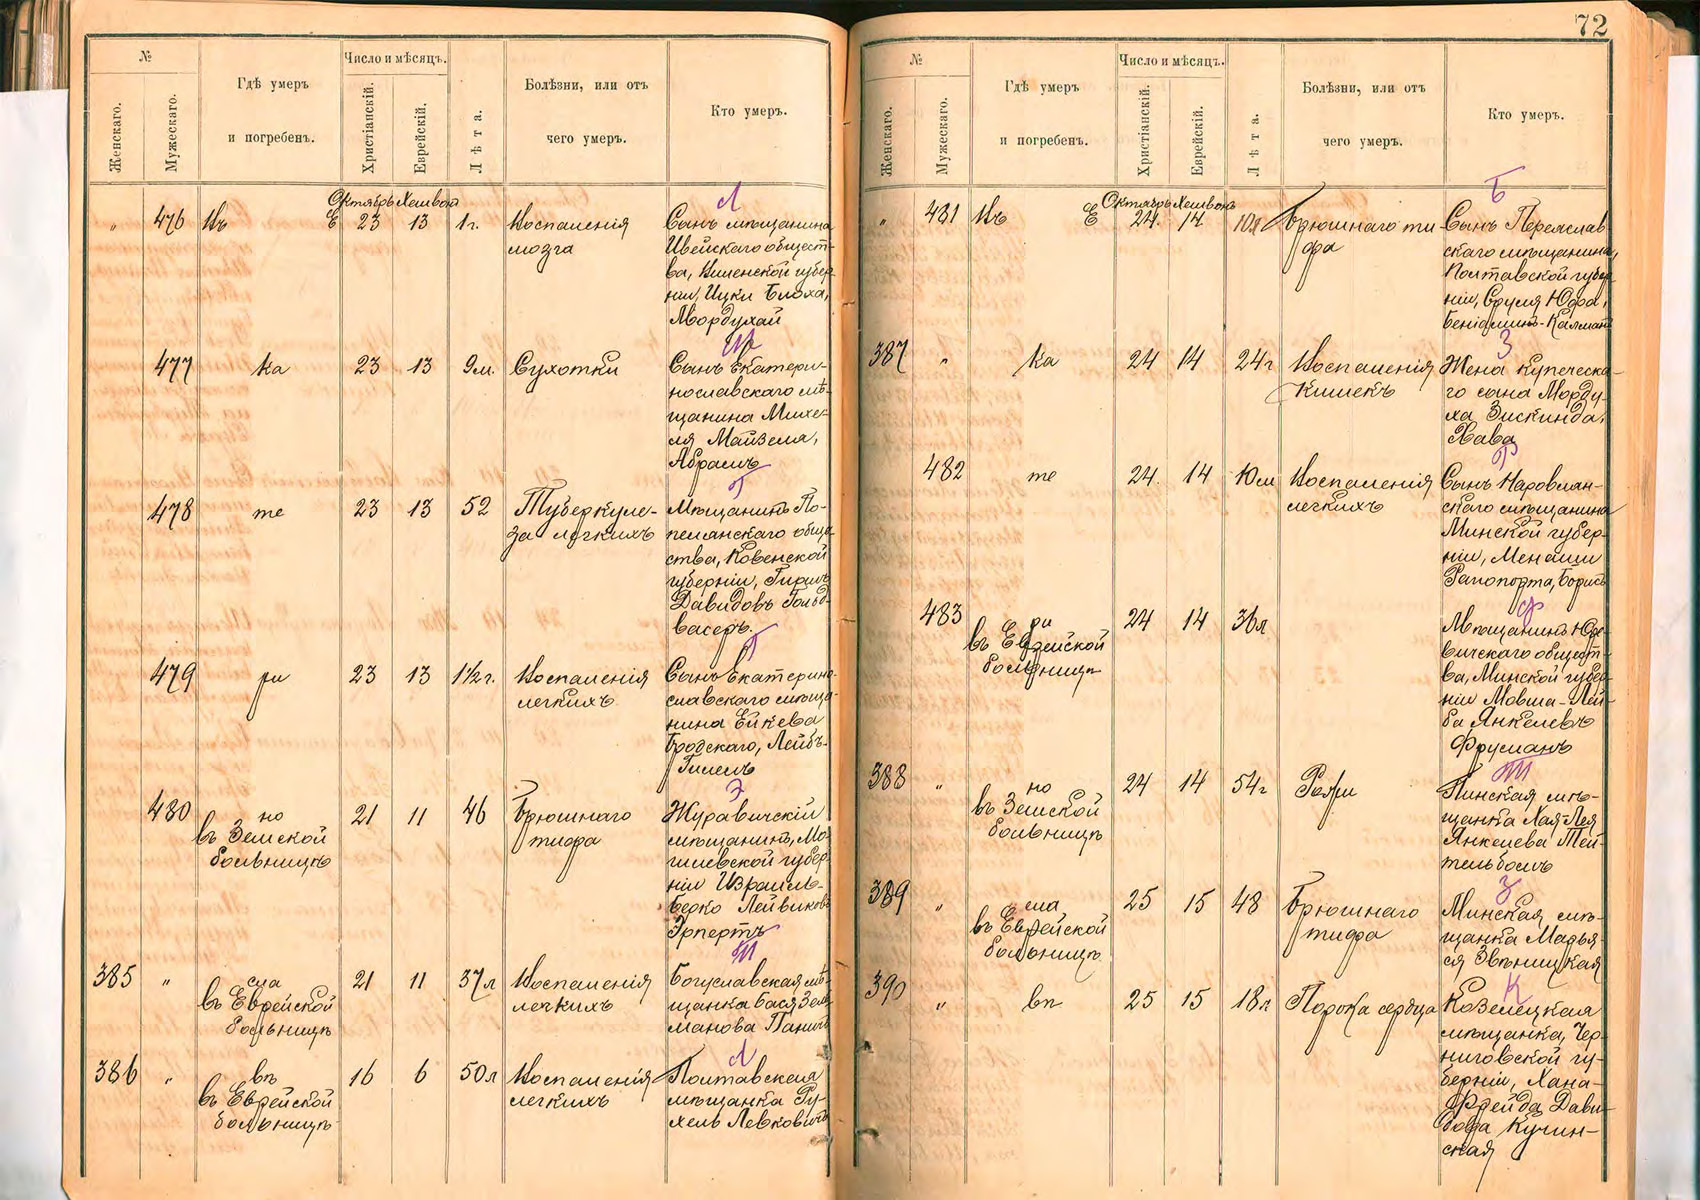 72
№
Женскаго.
Мужескаго.
Гдѣ умеръ
и погребенъ.
Число и мѣсяцъ.
Христіанскій.
Еврейскій.
Лѣта.
Болѣзни, или отъ
чего умеръ.
Кто умеръ.
Октябрь Хешвон
Л
" 476 Въ Е 23 13 1 г.
Воспаленія
мозга
Сынъ мѣщанина
Ивейскаго общест-
ва, Виленской губер-
ніи, Ицки Блоха,
Мордухай
477 ка 23 13 9 м. Сухотки
Сынъ Екатери-
нославскаго мѣ-
щанина Михе-
ля Майзеля,
Абрамъ
Г
478 те 23 13 52
Туберкуле-
за легкихъ
Мѣщанинъ По-
пелянскаго обще-
ства, Ковенской
губерніи, Гиршъ
Давидовъ Гольд-
васеръ.
479 ри 23 13 1½ г.
Воспаленія
легкихъ
Сынъ Екатерино-
славскаго мѣща-
нина Ейкева
Бродскаго, Лейбъ-
Гилель
Э
480 но 21 11 46
въ Земской
больницѣ
Брюшнаго
тифа
Журавичскій
мѣщанинъ, Мо-
гилевской губер-
ніи Израиль-
Берко Лейвиковъ
Эрпертъ
385 " сла 21 11 37 л
въ Еврейской
больницѣ
Воспаленія
легкихъ
Богуславская мѣ-
щанка Бася Зель-
манова
386 " вп 16 6 50 л
въ Еврейской
больницѣ
Воспаленія
легкихъ
Л
Полтавская
мѣщанка Ру-
хель Левковичъ
№
Женскаго.
Мужескаго.
Гдѣ умеръ
и погребенъ.
Число и мѣсяцъ.
Христіанскій.
Еврейскій.
Лѣта.
Болѣзни, или отъ
чего умеръ.
Кто умеръ.
Октябрь Хешвонъ
Б
" 481 Въ Е 24 14 10 л
Брюшнаго ти-
фа
Сынъ Переяслав
скаго мѣщанина,
Полтавской губер-
ніи, Сруля Юфа,
Беніаминъ-Калманъ
З
387 " ка 24 14 24 г
Воспаленія
кишекъ
Жена купеческа-
го сына Морду-
ха Зискинда,
Хава
Р
482 те 24 14 10 м
Воспаленія
легкихъ
Сынъ Наровлян-
скаго мѣщанина
Минской губер-
ніи, Менаши
Рапопорта, Борисъ
Ф
483 ри 24 14 36 л
въ Еврейской
больницѣ
Мѣщанинъ Юре-
вичскаго общест-
ва, Минской губер-
ніи Мовша-Лей-
ба Янкелевъ
Фруманъ
388 " но 24 14 54 г Рожи
въ Земской
больницѣ
Пинская мѣ-
щанка Хая-Лея
Янкелева Тей-
тельбомъ
З
389 " сла 25 15 48
въ Еврейской
больницѣ
Брюшнаго
тифа
Минская мѣ-
щанка Марья-
ся Звѣницкая
К
390 " вп 25 15 18 л Порока сердца
Козелецкая
мѣщанка, Чер-
ниговской гу-
берніи, Хана-
Фрейда Дави-
дова Кучин-
ская